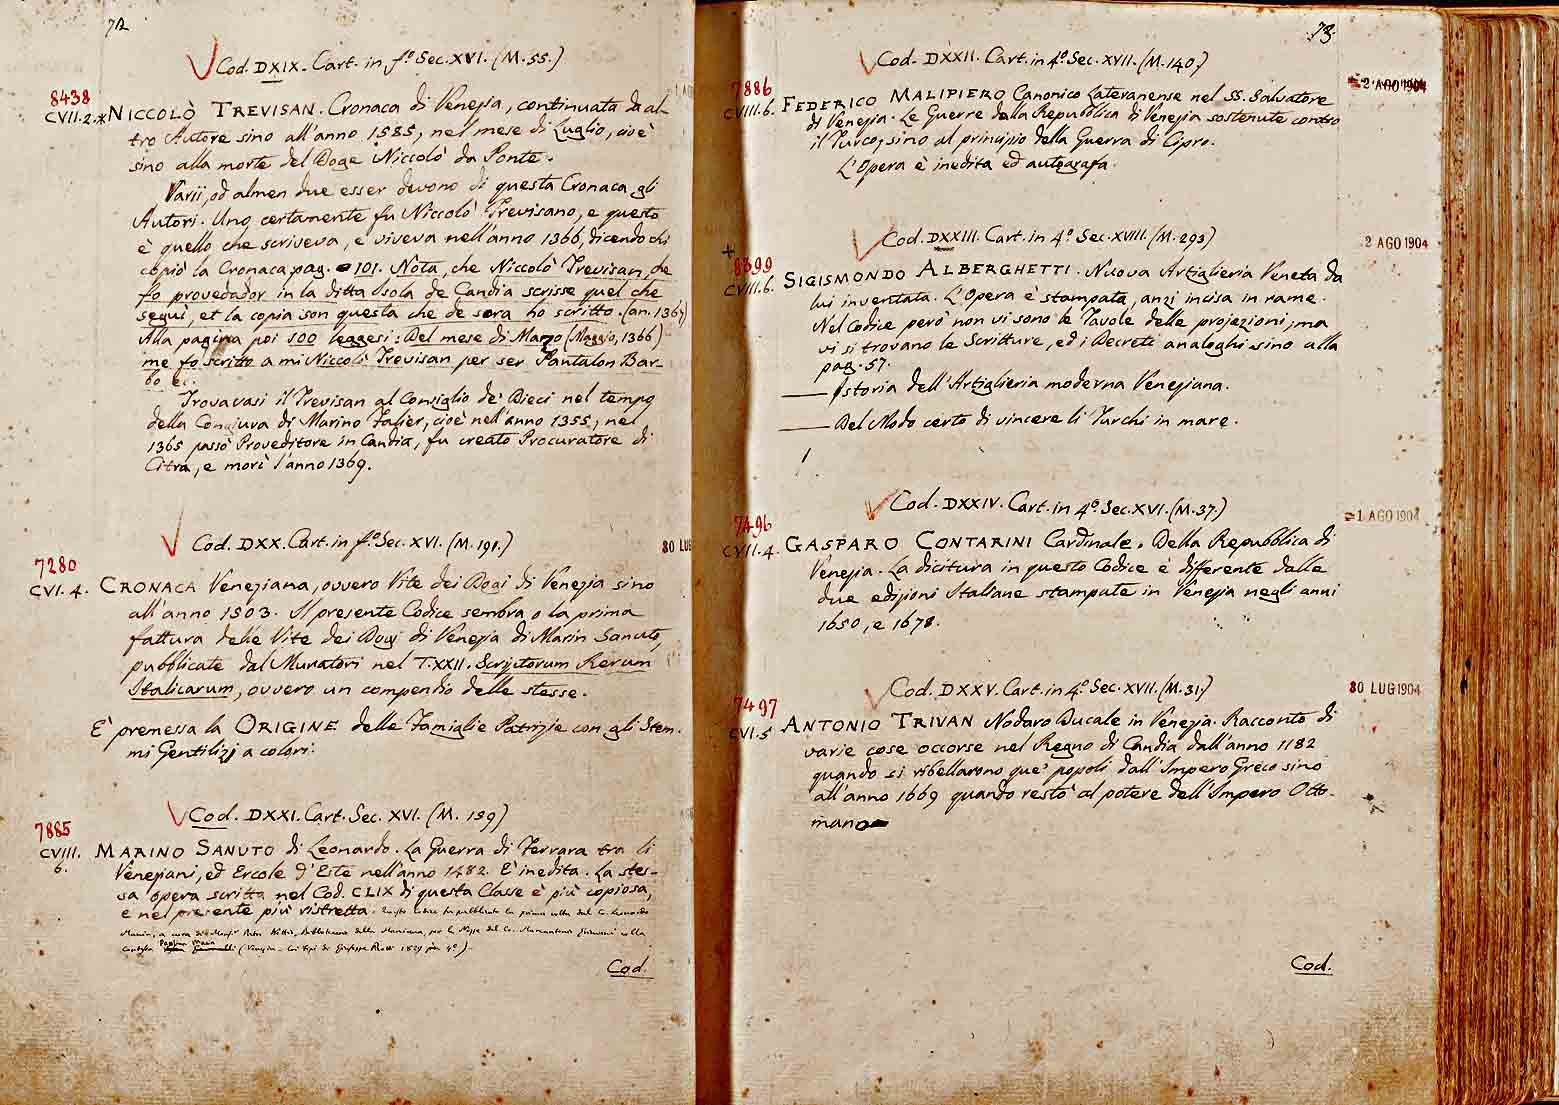 72
Cod. DXIX. Cart. in fº. Sec. XVI. (M. 55.)
8438
CVII.2.*
NICCOLÒ TREVISAN. Cronaca di Venezia, continuata da al-
tro Autore sino all'anno 1585, nel mese di Luglio, cioè
sino alla morte del Doge Niccolò da Ponte.
Varii, od almen due esser devono di questa Cronaca gli
Autori. Uno certamente fu Niccolò Trevisano, e questo
è quello che scriveva, e viveva nell'anno 1366, dicendo chi
copiò la Cronaca pag. 101. Nota, che Niccolò Trevisan, che
fo provedador in la ditta Isola de Candia scrisse quel che
seguì, et la copia son questa che de sora ho scritto. (an. 1367)
Alla pagina poi 100 leggesi: Del mese di Marzo (Maggio, 1366)
me fo scritto a mi Niccolò Trevisan per ser Pantalon Bar-
bo ec.
Trovavasi il Trevisan al Consiglio de' Dieci nel tempo
della Congiura di Marino Falier, cioè nell'anno 1355, nel
1365 passò Proveditore in Candia, fu creato Procuratore di
Citra, e morì l'anno 1369.
Cod. DXX. Cart. in fº. Sec. XVI. (M. 191.)
30 LUG
7280
CVI. 4.
CRONACA Veneziana, ovvero Vite dei Dogi di Venezia sino
all'anno 1503. Il presente Codice sembra o la prima
fattura delle Vite dei Dogi di Venezia di Marin Sanuto,
pubblicate dal Muratori nel T. XXII. Scriptorum Rerum
Italicarum, ovvero un compendio delle stesse.
E' premessa la ORIGINE delle Famiglie Patrizie con gli Stem-
mi Gentilizj a colori.
Cod. DXXI. Cart. Sec. XVI. (M. 159)
7885
CVIII.
6.
MARINO SANUTO di Leonardo. La Guerra di Ferrara tra li
Veneziani, ed Ercole d'Este nell'anno 1482. E' inedita. La stes-
sa opera scritta nel Cod. CLIX di questa Classe è più copiosa,
e nel presente più ristretta. Questo codice fu pubblicato la prima volta dal C. Leonardo
Manin, a cura di Monsr. Pietro Bettio, Bibliotecario della Marciana, per le Nozze del Co. Marcantonio Giustiniani colla
Contessa (Venezia – coi tipi di Giuseppe Picotti 1829 in 4º.)
Cod.
73.
Cod. DXXII. Cart. in 4º. Sec. XVII. (M. 140.)
2 AGO 1904
7886
CVIII. 6.
FEDERICO MALIPIERO Canonico Lateranense nel SS. Salvatore
di Venezia. Le Guerre della Repubblica di Venezia sostenute contro
il Turco, sino al principio della Guerra di Cipro.
L'Opera è inedita ed autografa.
Cod. DXXIII. Cart. in 4º. Sec. XVIII. (M. 293)
2 AGO 1904
+
8399
CVIII. 6.
SIGISMONDO ALBERGHETTI. Nuova Artiglieria Veneta da
lui inventata. L'Opera è stampata, anzi incisa in rame.
Nel Codice però non vi sono le Tavole delle projezioni, ma
vi si trovano le Scritture, ed i Decreti analoghi sino alla
pag. 57.
—— Istoria dell'Artiglieria moderna Veneziana.
—— Del Modo certo di vincere li Turchi in mare.
Cod. DXXIV. Cart. in 4º. Sec. XVI. (M. 37.)
1 AGO 1904
7496
CVII. 4.
GASPARO CONTARINI Cardinale. Della Repubblica di
Venezia. La dicitura in questo Codice è differente dalle
due edizioni Italiane stampate in Venezia negli anni
1650, e 1678.
Cod. DXXV. Cart. in 4º. Sec. XVII. (M. 31.)
30 LUG 1904
7497
CVI. 5
ANTONIO TRIVAN Nodaro Ducale in Venezia. Racconto di
varie cose occorse nel Regno di Candia dall'anno 1182
quando si ribellarono que' popoli dall'Impero Greco sino
all'anno 1669 quando restò al potere dell'Impero Otto-
mano
Cod.